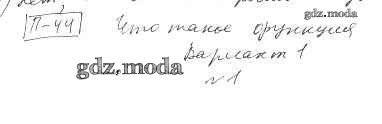 gdz.moda
П-44 Что такое функция
Вариант 1
gdz.moda
№1